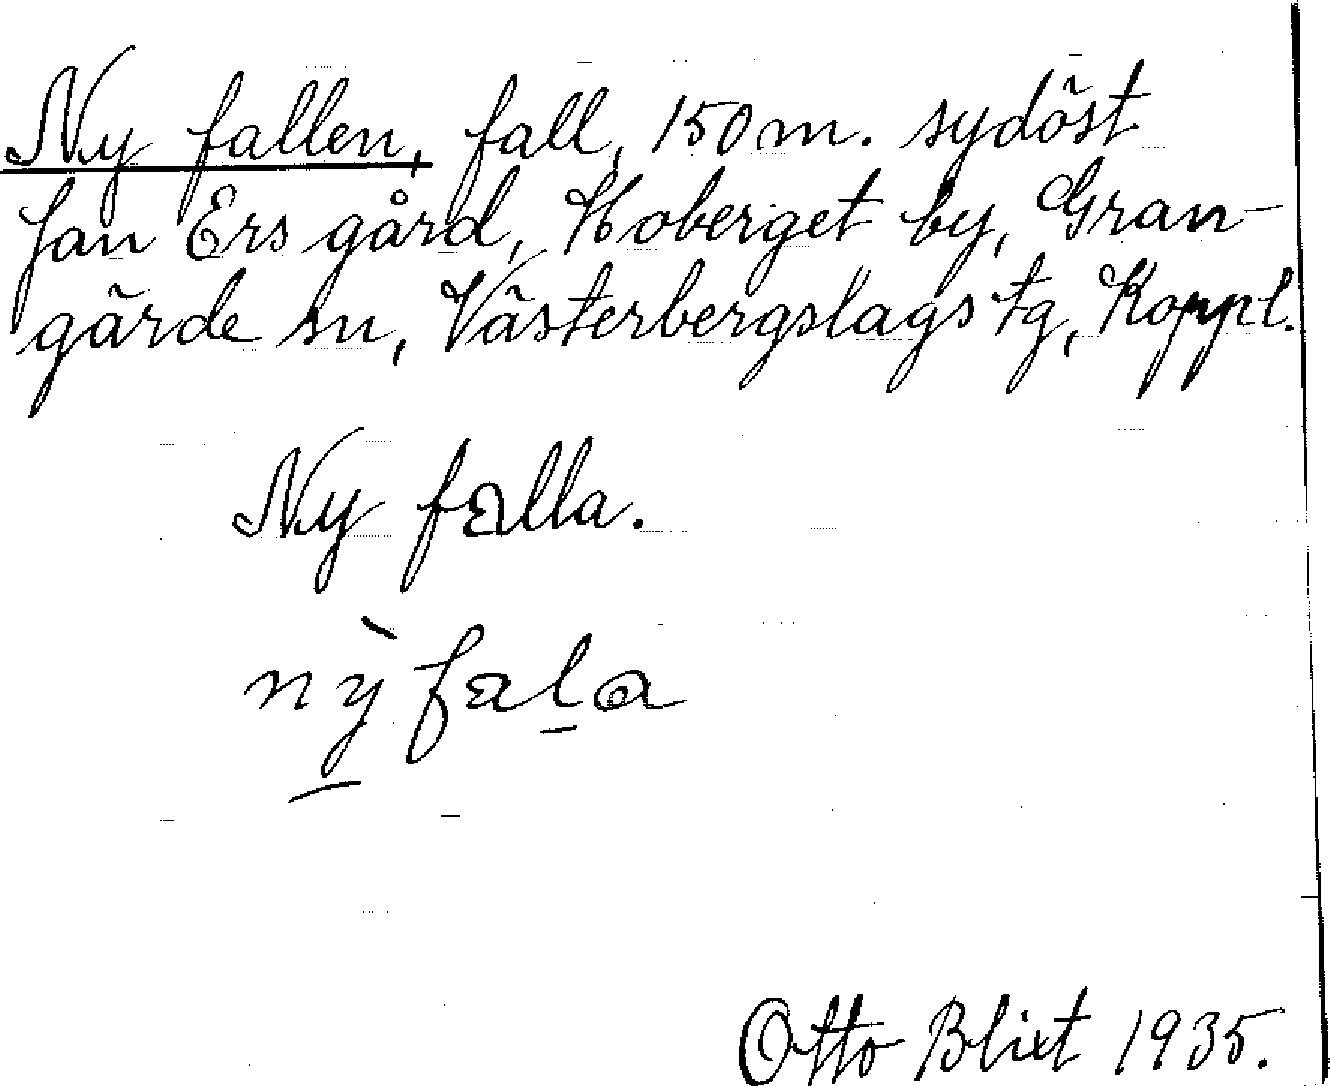 Ny fallen, fall, 150 m. sydöst
Jan Ers gård, Hoberget by, Gran-
gärde sn, Västerbergslags tg, Koppl.
Ny falla.
nỳfala
Otto Blixt 1935.